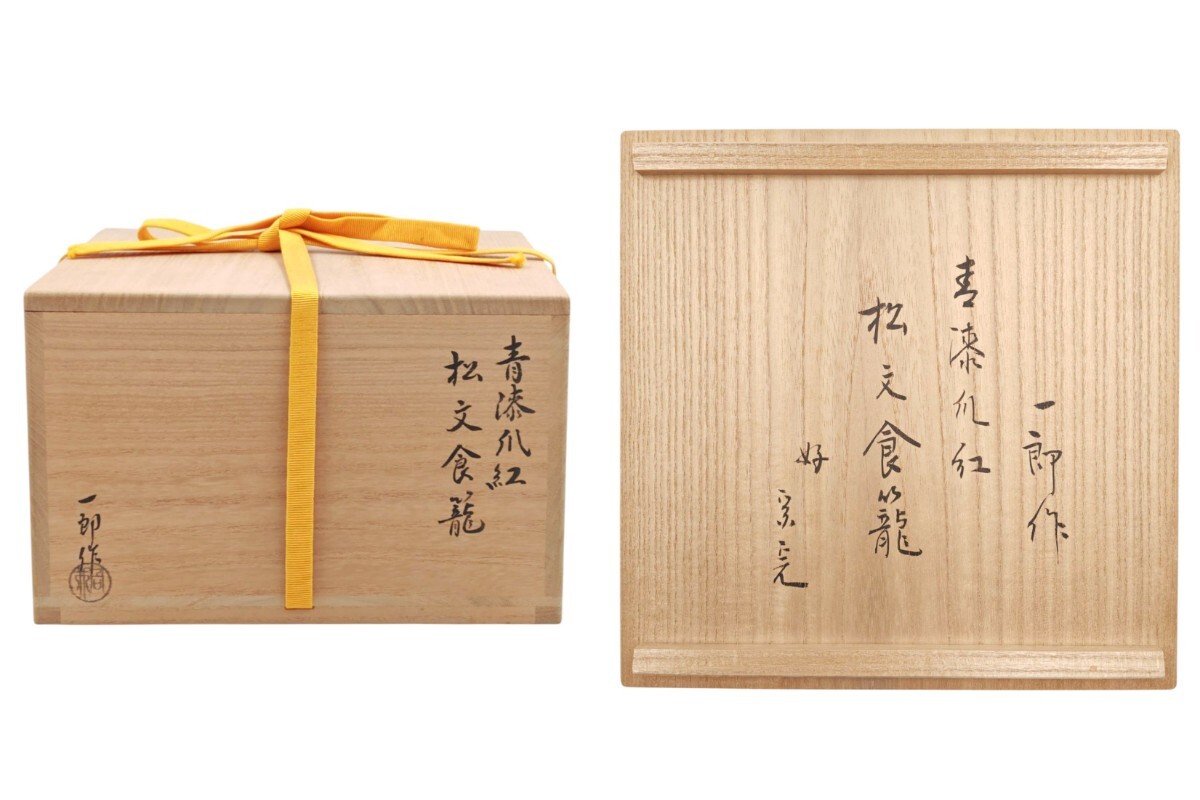 青漆爪紅
松文食籠
一郎作
一郎作
青漆爪紅
松文食籠
好
宗完